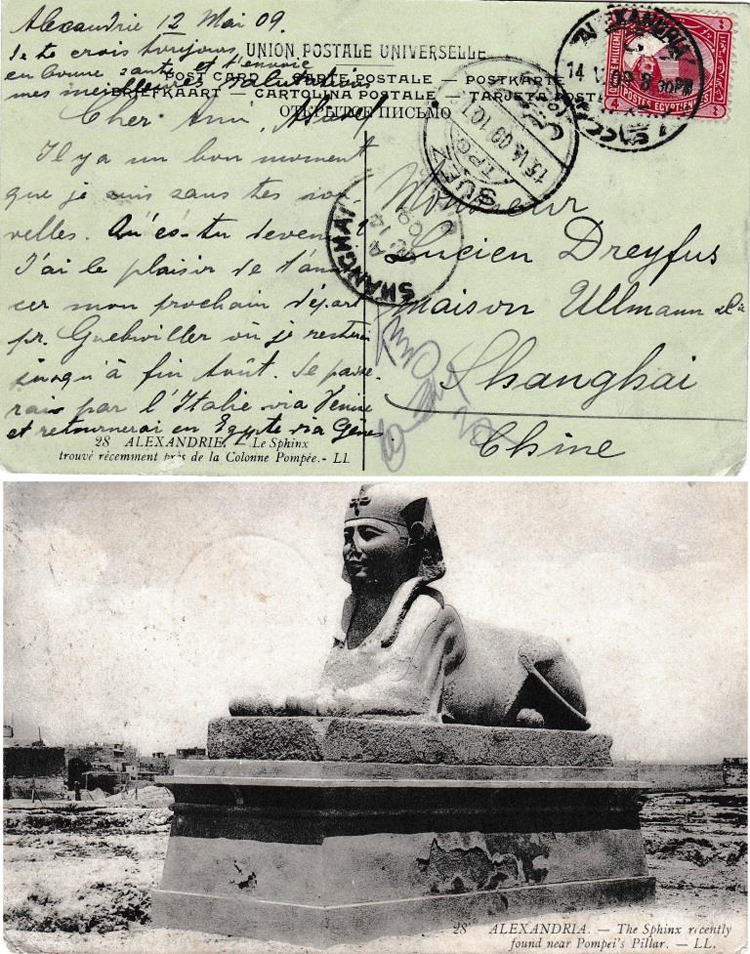 Alexandrie 12 Mai 09.
Je te crois toujours
en bonne santé et t'envoie
mes meilleures salutations
UNION POSTALE UNIVERSELLE
POST CARD — CARTE POSTALE — POSTKARTE
BRIEFKAART — CARTOLINA POSTALE — TARJETA POSTAL
ОТКРЫТОЕ ПИСЬМО
Cher Ami,
Il y a un bon moment
que je suis sans tes nou-
velles. Qu'es-tu devenu?
J'ai le plaisir de t'annon
cer mon prochain départ
pr. Guebwiller où je resterai
jusqu'à fin Août. Je passe-
rai par l'Italie via Venise
et retournerai en Egypte via Gênes.
28 ALEXANDRIE. — Le Sphinx
trouvé récemment près de la Colonne Pompée. - LL
Monsieur
Lucien Dreyfus
Maison Ullmann & Cie
Shanghai
Chine
ALEXANDRIA
14 V 09 8 30 PM
POSTES EGYPTIENNES
4
4
SUEZ
15 V 09 10
SHANGHAI
14
09
28 ALEXANDRIA. — The Sphinx recently
found near Pompei's Pillar. — LL.